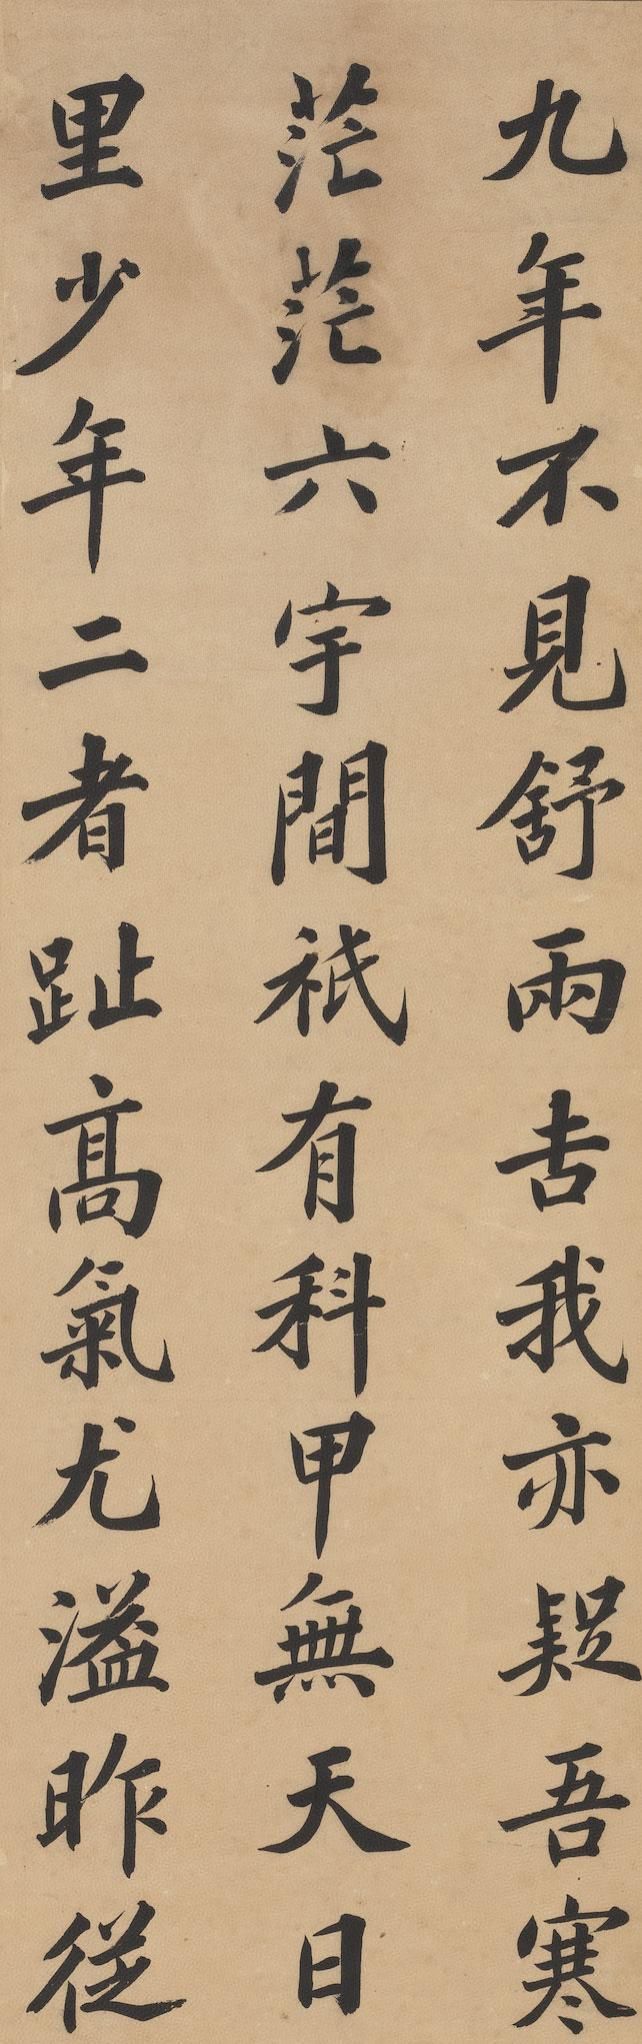 九年不見舒雨吉我亦疑吾寒
茫茫六宇間祇有科甲無天日
里少年二者趾高氣尤溢昨從